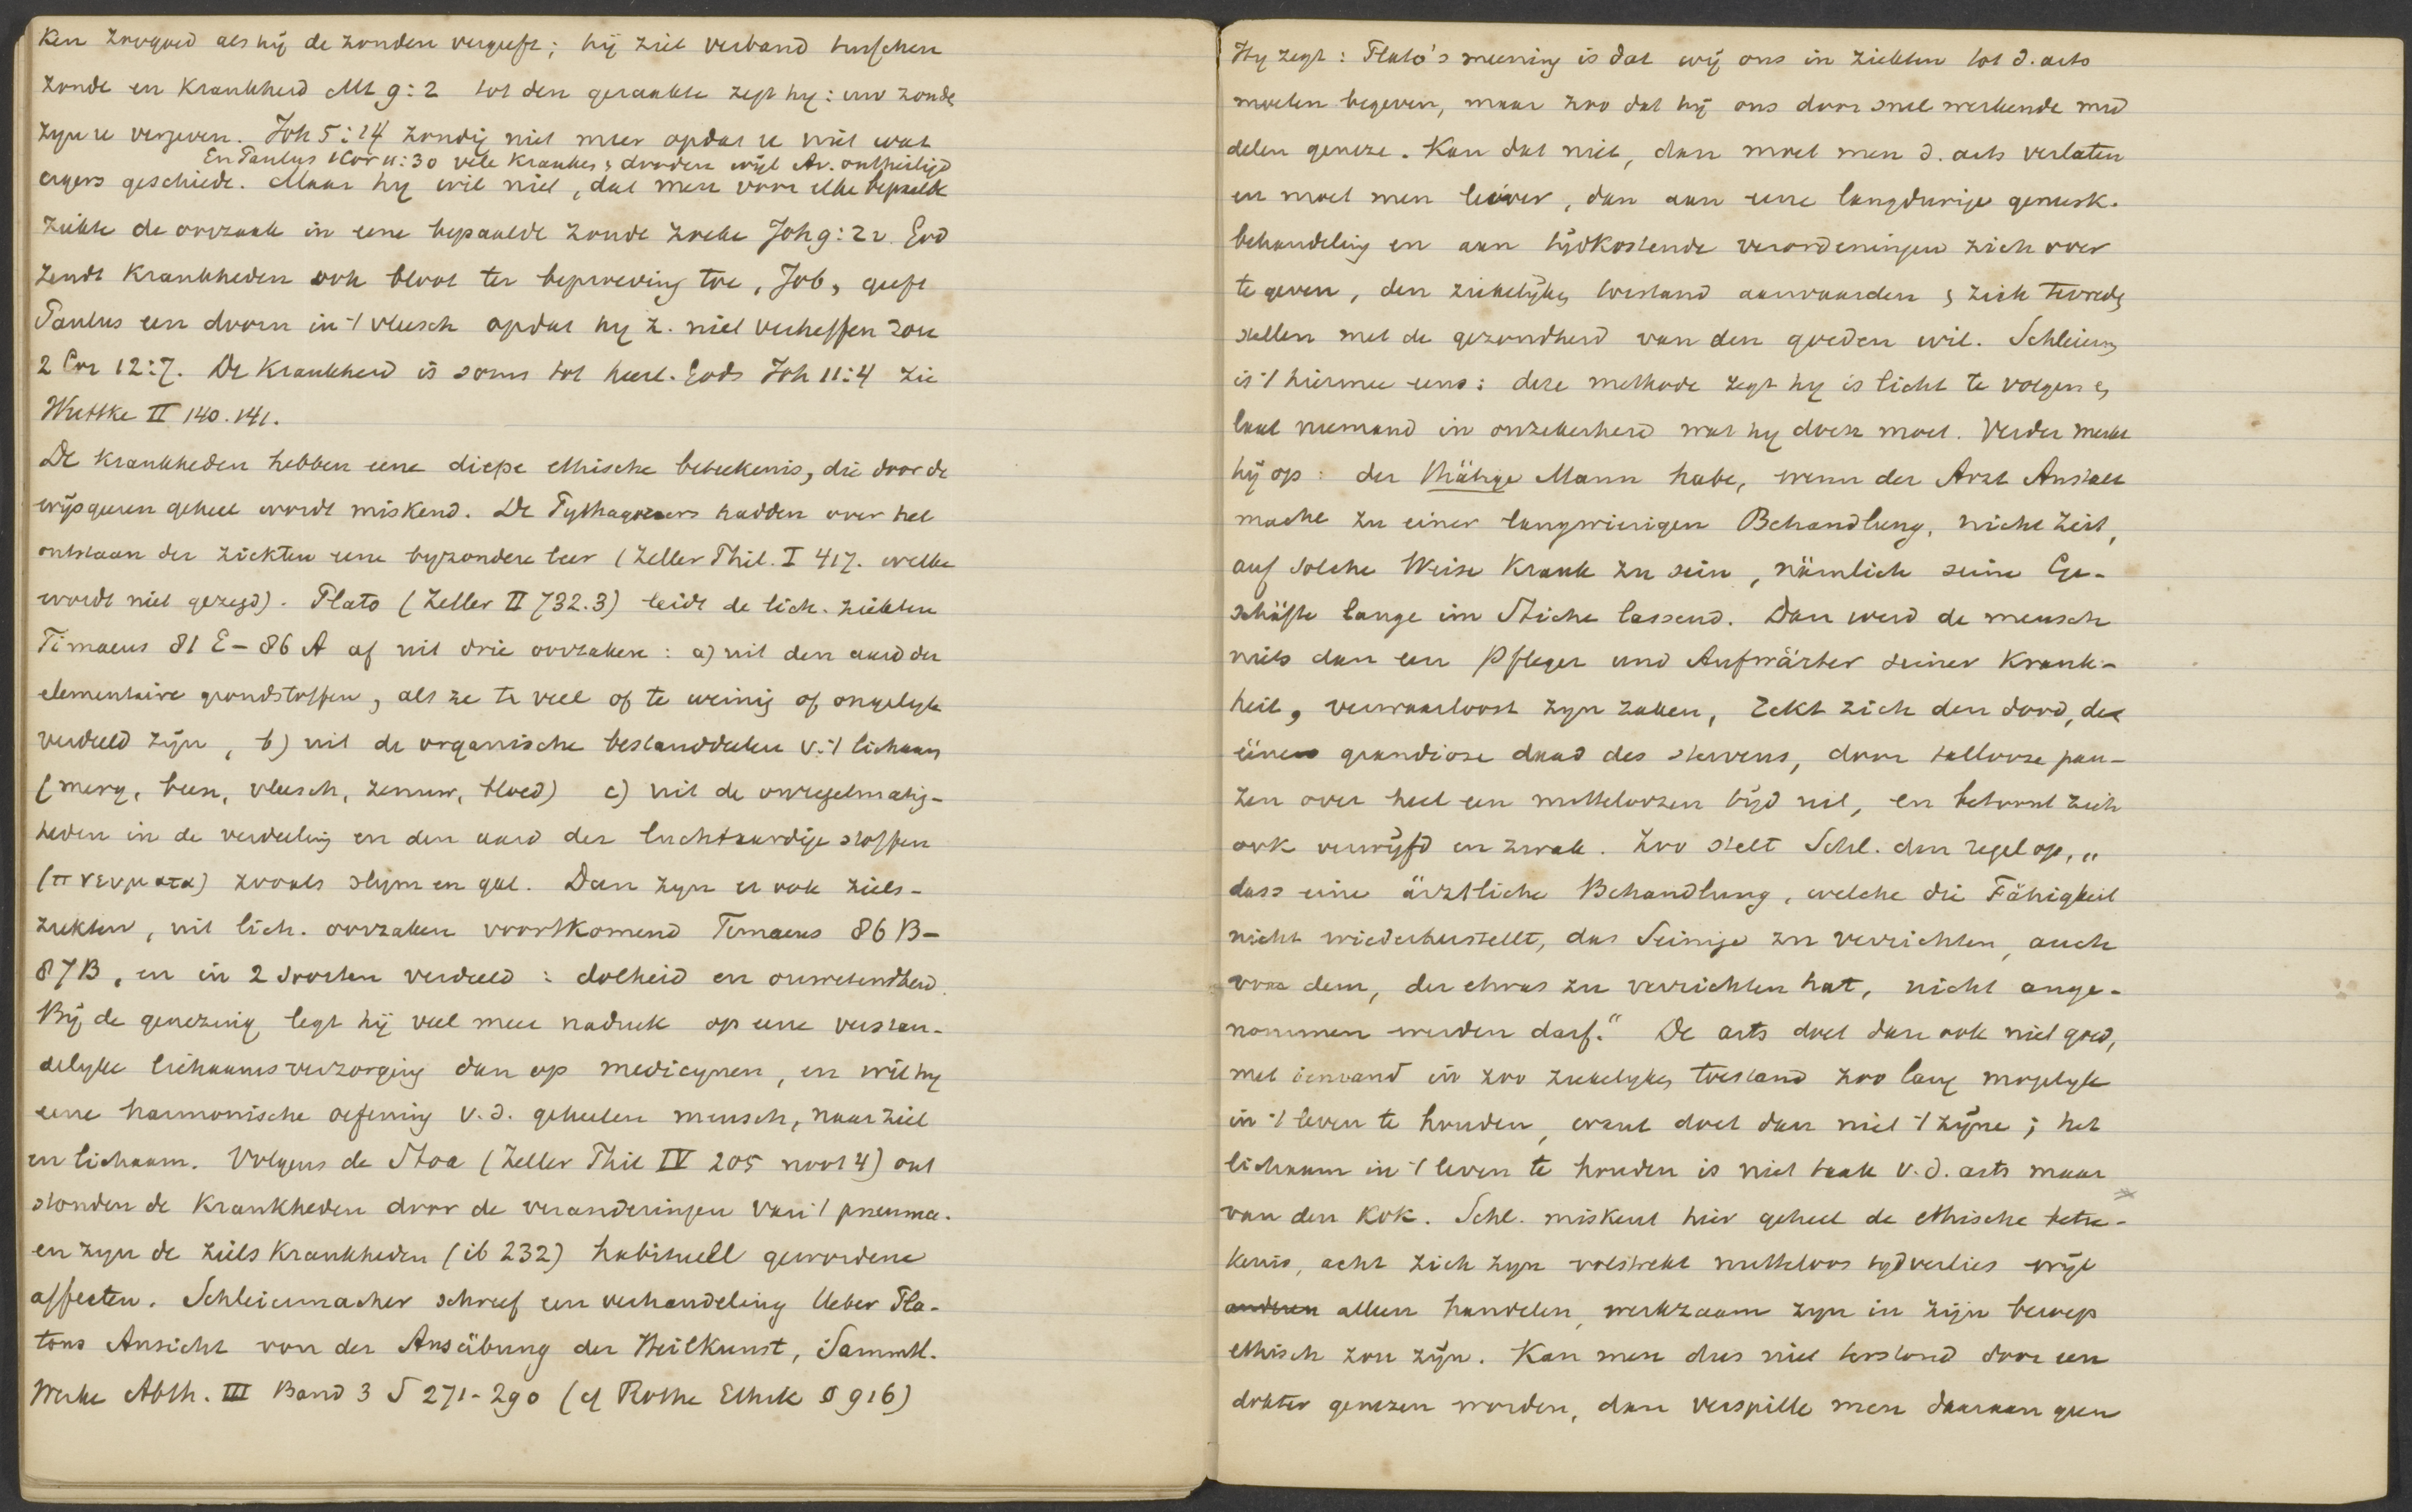 ken zoogoed als hij de zonden vergeeft; hij ziet verband tusschen
zonde en krankheid Mt 9:2 tot den geraakte zegt hy: uw zonden
zyn u vergeven. Joh 5:14 zondig niet meer opdat u niet wat
En Paulus 1 Cor 11:30 vele kranken & dooden wijl Av. ontheiligd
ergers geschiede. Maar hy wil niet, dat men voor elke bepaalde
ziekte de oorzaak in eene bepaalde zonde zoeke Joh 9:2v. God
zendt krankheden ook bloot ter beproeving toe, Job, geeft
Paulus een doorn in 't vleesch opdat hy z. niet verheffen zou
2 Cor 12:7. De krankheid is soms tot heerl. Gods Joh 11:4 zie
Wuttke II 140.141.
De krankheden hebben eene diepe ethische beteekenis, die door de
wijsgeeren geheel wordt miskend. De Pythagoreers hadden over het
ontstaan der ziekten eene byzondere leer (Zeller Phil. I 417. welke
wordt niet gezegd). Plato (Zeller II 732.3) leidt de lich. ziekten
Timaeus 81 E - 86 A af uit drie oorzaken: a) uit den aard der
elementaire grondstoffen, als ze te veel of te weinig of ongelyk
verdeeld zijn, b) uit de organische bestanddeelen v. 't lichaam
(merg, been, vleesch, zenuw, bloed) c) uit de onregelmatig-
heden in de verdeeling en den aard der luchtaardige stoffen
(πνευματα) zooals slym en gal. Dan zyn er ook ziels-
ziekten, uit lich. oorzaken voortkomend Timaeus 86 B-
87B, en in 2 soorten verdeeld: dolheid en onwetendheid.
Bij de genezing legt hij veel meer nadruk op eene verstan-
delyke lichaamsverzorging dan op medicynen, en wil hy
eene harmonische oefening v.d. geheelen mensch, naar ziel
en lichaam. Volgens de Stoa (Zeller Phil IV 205 noot 4) ont
stonden de krankheden door de veranderingen van 't pneuma.
en zyn de ziels krankheden (ib 232) habituell gewordene
affecten. Schleiermacher schreef een verhandeling Ueber Pla-
tons Ansicht von der Ausübung der Heilkunst, Sammtl.
Werke Abth. III Band 3 S 271-290 (cf Rothe Ethik § 916)
Hy zegt: Plato's meening is dat wij ons in ziekten tot d. arts
moeten begeven, maar zoo dat hij ons door snel werkende mid
delen geneze. Kan dat niet, dan moet men d. arts verlaten
en moet men liever, dan aan eene langdurige geneesk.
behandeling en aan tijdkostende verordeningen zich over
te geven, den ziekelijken toestand aanvaarden & zich tevreden
stellen met de gezondheid van den goeden wil. Schleierm
is 't hiermee eens: deze methode zegt hy is licht te volgen en
laat niemand in onzekerheid wat hy doen moet. Verder merkt
hij op: der thätige Mann habe, wenn der Arzt Anstalt
mache zu einer langwierigen Behandlung, nicht Zeit,
auf solche Weise krank zu sein, nämlich seine Ge-
schäfte lange im Stiche lassend. Dan werd de mensch
niets dan een Pfleger und Aufwärter seiner Krank-
heit, verwaarloost zyn zaken, rekt zich den dood, de
eene grandiose daad des stervens, door tallooze pau-
zen over heel een nutteloozen tijd uit, en betoont zich
ook verwijfd en zwak. Zoo stelt Schl. den regel op, "
dass eine ärztliche Behandlung, welche die Fähigkeit
nicht wiederherstellt, das Seinige zu verrichten, auch
von dem, der etwas zu verrichten hat, nicht ange-
nommen werden darf." De arts doet dan ook niet goed,
met iemand in zoo ziekelyken toestand zoo lang mogelyk
in 't leven te houden, want doet dan niet 't zijne; het
lichaam in 't leven te houden is niet taak v.d. arts maar
van den kok. Schl. miskent hier geheel de ethische betee-
kenis, acht ziek zyn volstrekt nutteloos tydverlies wijl
alleen handelen, werkzaam zyn in zijn beroep
ethisch zou zijn. Kan men dus niet terstond door een
dokter genezen worden, dan verspille men daaraan geen